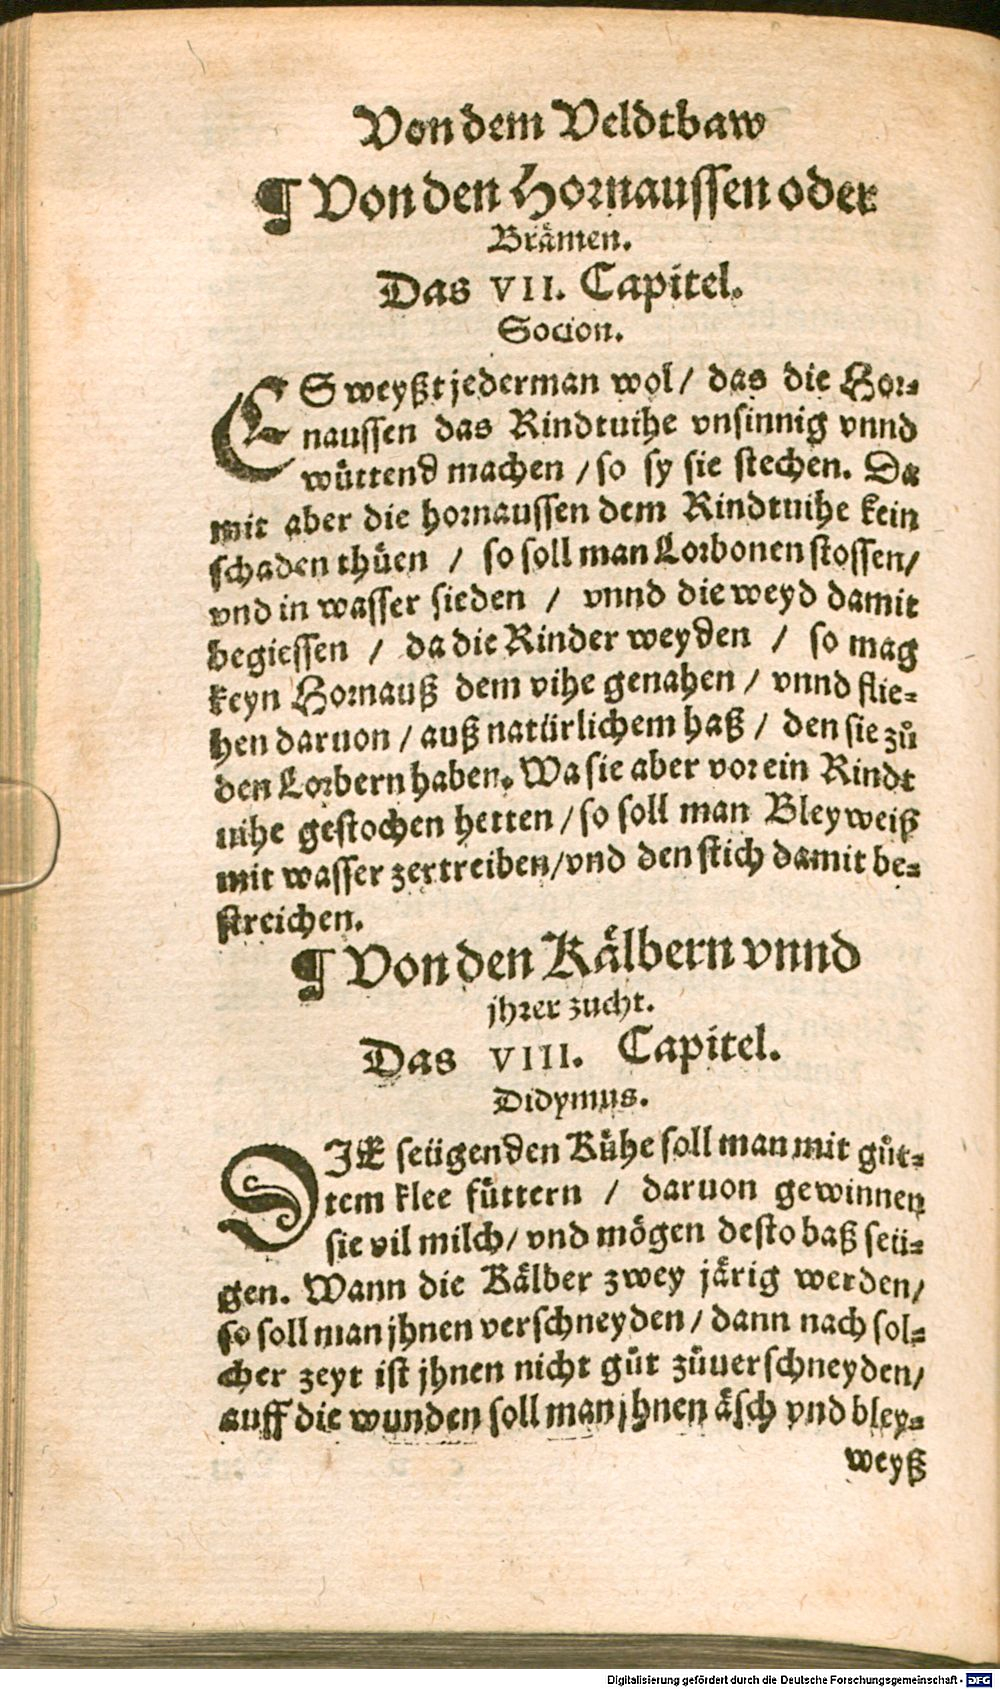 Von dem Veldtbaw
¶ Von den Hornaussen oder
Brämen.
Das VII. Capitel.
Socion.
ES weyßt jederman wol / das die Hor-
naussen das Rindtuihe vnsinnig vnnd
wüttend machen / so sy sie stechen. Da
mit aber die hornaussen dem Rindtuihe kein
schaden thüen / so soll man Lorbonen stossen /
vnd in wasser sieden / vnnd die weyd damit
begiessen / da die Rinder weyden / so mag
keyn Hornauß dem vihe genahen / vnnd flie-
hen daruon / auß natürlichem haß / den sie zů
den Lorbern haben. Wa sie aber vor ein Rindt
uihe gestochen hetten / so soll man Bleyweiß
mit wasser zertreiben / vnd den stich damit be-
streichen.
¶ Von den Kälbern vnnd
jhrer zucht.
Das VIII. Capitel.
Didymus.
DIE seügenden Kühe soll man mit gůt-
tem klee füttern / daruon gewinnen
sie vil milch / vnd mögen desto baß seü-
gen. Wann die Kälber zwey järig werden /
so soll man jhnen verschneyden / dann nach sol-
cher zeyt ist jhnen nicht gůt zůuerschneyden /
auff die wunden soll man jhnen äsch vnd bley-
weyß
Digitalisierung gefördert durch die Deutsche Forschungsgemeinschaft - DFG